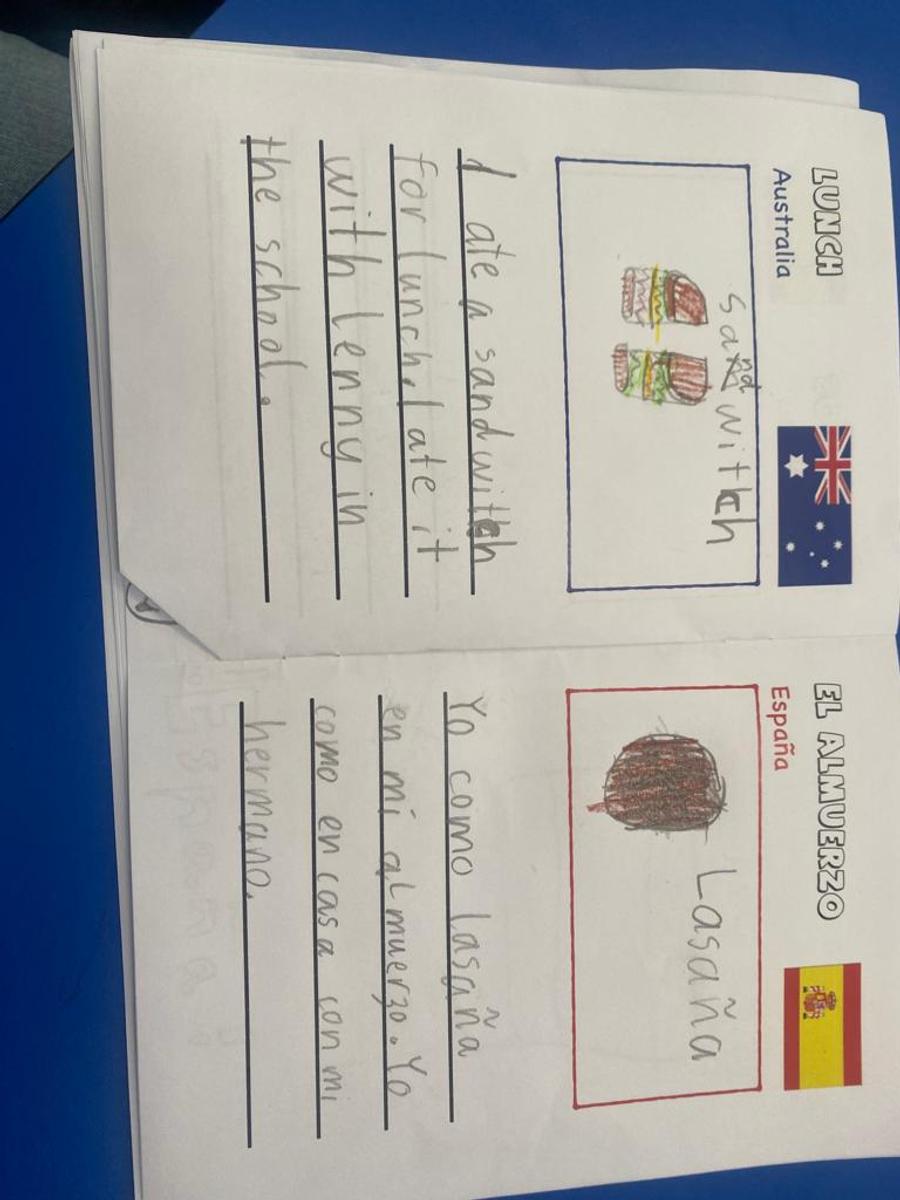 LUNCH
Australia
sandwitch
I ate a sandwitch
for lunch. I ate it
with Lenny in
the school.
EL ALMUERZO
España
Lasaña
Yo como lasaña
en mi almuerzo. Yo
como en casa con mi
hermano.